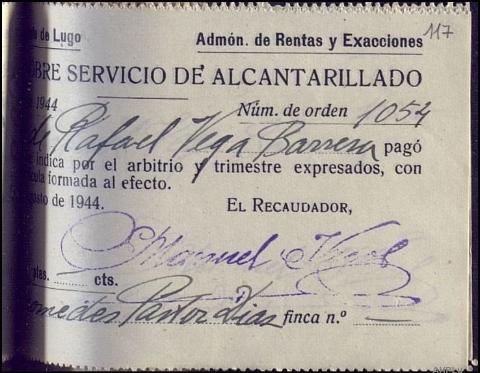 de Lugo
Admón. de Rentas y Exacciones
117
BRE SERVICIO DE ALCANTARILLADO
1944
Núm. de orden 1054
de Rafael Vega Barrera pagó
indica por el arbitrio y trimestre expresados, con
cula formada al efecto.
gosto de 1944.
EL RECAUDADOR,
Manuel
ptas. cts.
omedes Pastor Dias finca n.º